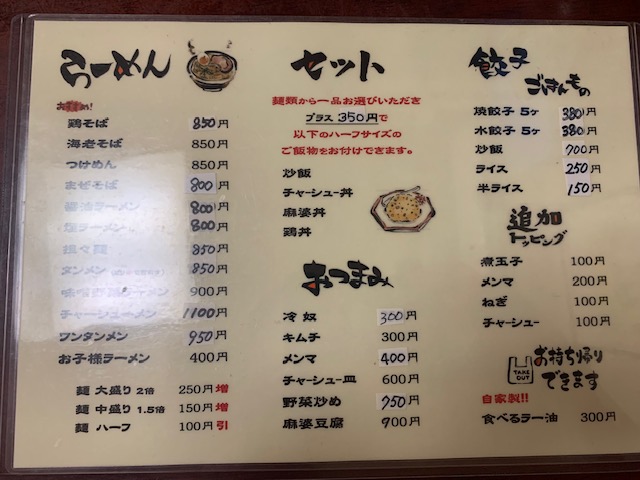 らーめん
おすすめ!
鶏そば 850円
海老そば 850円
つけめん 850円
まぜそば 800円
醤油ラーメン 800円
塩ラーメン 800円
担々麺 850円
タンメン 850円
味噌野菜ラーメン 900円
チャーシューメン 1100円
ワンタンメン 950円
お子様ラーメン 400円
麺 大盛り 2倍 250円 増
麺 中盛り 1.5倍 150円 増
麺 ハーフ 100円 引
セット
麺類から一品お選びいただき
プラス 350円で
以下のハーフサイズの
ご飯物をお付けできます。
炒飯
チャーシュー丼
麻婆丼
鶏丼
おつまみ
冷奴 300円
キムチ 300円
メンマ 400円
チャーシュー皿 600円
野菜炒め 750円
麻婆豆腐 900円
餃子
ごはんもの
焼餃子 5ヶ 380円
水餃子 5ヶ 380円
炒飯 700円
ライス 250円
半ライス 150円
追加
トッピング
煮玉子 100円
メンマ 200円
ねぎ 100円
チャーシュー 100円
TAKE OUT
お持ち帰り
できます
自家製!!
食べるラー油 300円